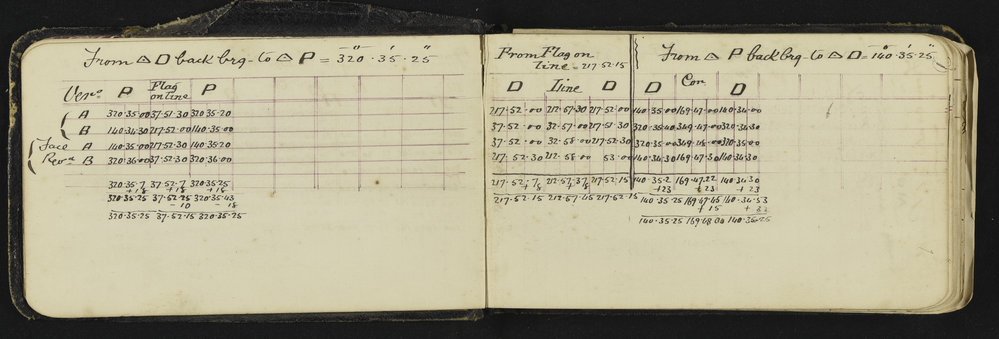 From △ D back brg - to △ P = 320° · 35' · 25"
Vers P Flag on line P
A 320·35·00 37·51·30 320·35·20
B 140·34·30 217·52·00 140·35·00
Face A 140·35·00 217·52·30 140·35·20
Revd B 320·36·00 37·52·30 320·36·00
320·35·7 37·52·7 320·35·25
+18 +18
320·35·25 37·52·25 320·35·43
-10 -18
320·35·25 37·52·15 320·35·25
From Flag on
line = 217·52·15
D Line D
217·52·00 212·57·30 217·52·00
37·52·00 32·57·00 217·51·30
37·52·00 32·58·00 217·52·30
217·52·30 212·58·00 53·00
217·52·7 212·57·37 217·52·15
+8 +8
217·52·15 212·57·45 217·52·15
From △ P back brg to △ D = 140° · 35' · 25"
D Cor. D
140·35·00 169·47·00 140·34·00
320·35·40 349·47·00 320·34·30
320·35·00 349·48·00 320·35·00
140·34·30 169·47·30 140·34·30
140·35·2 169·47·22 140·34·30
+23 +23 +23
140·35·25 169·47·45 140·34·53
+15 +32
140·35·25 169·48·00 140·35·25